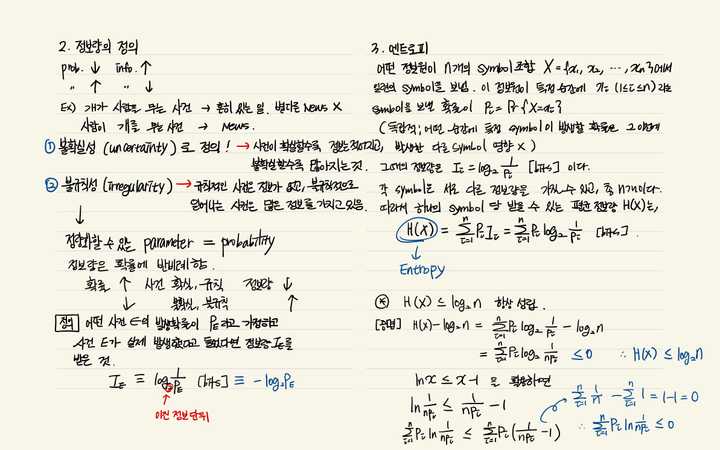 2. 정보량의 정의
prob. ↓ info. ↑
〃 ↑ 〃 ↓
Ex) 개가 사람을 무는 사건 → 흔히 있는 일. 별다른 News X
사람이 개를 무는 사건 → News.
① 불확실성 (uncertainty) 로 정의! → 사건이 확실할수록 정보는 적어지고,
불확실할수록 많아지는 것.
② 불규칙성 (irregularity) → 규칙적인 사건은 정보가 없고, 불규칙적으로
일어나는 사건은 많은 정보를 가지고 있음.
↓
정량화할 수 있는 parameter = probability
정보량은 확률에 반비례함.
확률 ↑ 사건 확실, 규칙 정보량 ↓
↓ 불확실, 불규칙 ↑
정의 어떤 사건 E의 발생확률이 P_E라고 가정하고
사건 E가 실제 발생했다고 들었다면 정보량 I_E를
받은 것.
I_E ≡ log₂ 1/P_E [bits] ≡ -log₂P_E
↑
이진 정보단위
3. 엔트로피
어떤 정보원이 n개의 symbol 조합 X = {x₁, x₂, ⋯, xₙ}에서
symbol을 보냄. 이 정보원이 특정 순간에 xᵢ (1≤i≤n) 라는
symbol을 보낼 확률이 Pᵢ = Pr{X=xᵢ}
(독립적; 어떤 순간에 특정 symbol이 발생할 확률은 그 이전에
발생한 다른 symbol 영향 X)
그때의 정보량은 Iᵢ = log₂ 1/Pᵢ [bits] 이다.
각 symbol은 서로 다른 정보량을 가질 수 있고, 총 n개이다.
따라서 하나의 symbol 당 받을 수 있는 평균 정보량 H(X)는,
H(X) = Σᵢ₌₁ⁿ PᵢIᵢ = Σᵢ₌₁ⁿ Pᵢ log₂ 1/Pᵢ [bits].
↓
Entropy
※ H(X) ≤ log₂n 항상 성립.
[증명] H(X) - log₂n = Σᵢ₌₁ⁿ Pᵢ log₂ 1/Pᵢ - log₂n
= Σᵢ₌₁ⁿ Pᵢ log₂ 1/nPᵢ ≤ 0 ∴ H(X) ≤ log₂n
ln x ≤ x-1 을 활용하면
ln 1/nPᵢ ≤ 1/nPᵢ - 1
Σᵢ₌₁ⁿ 1/n - Σᵢ₌₁ⁿ 1 = 1-1 = 0
Σᵢ₌₁ⁿ Pᵢ ln 1/nPᵢ ≤ Σᵢ₌₁ⁿ Pᵢ(1/nPᵢ - 1) ∴ Σᵢ₌₁ⁿ Pᵢ ln 1/nPᵢ ≤ 0